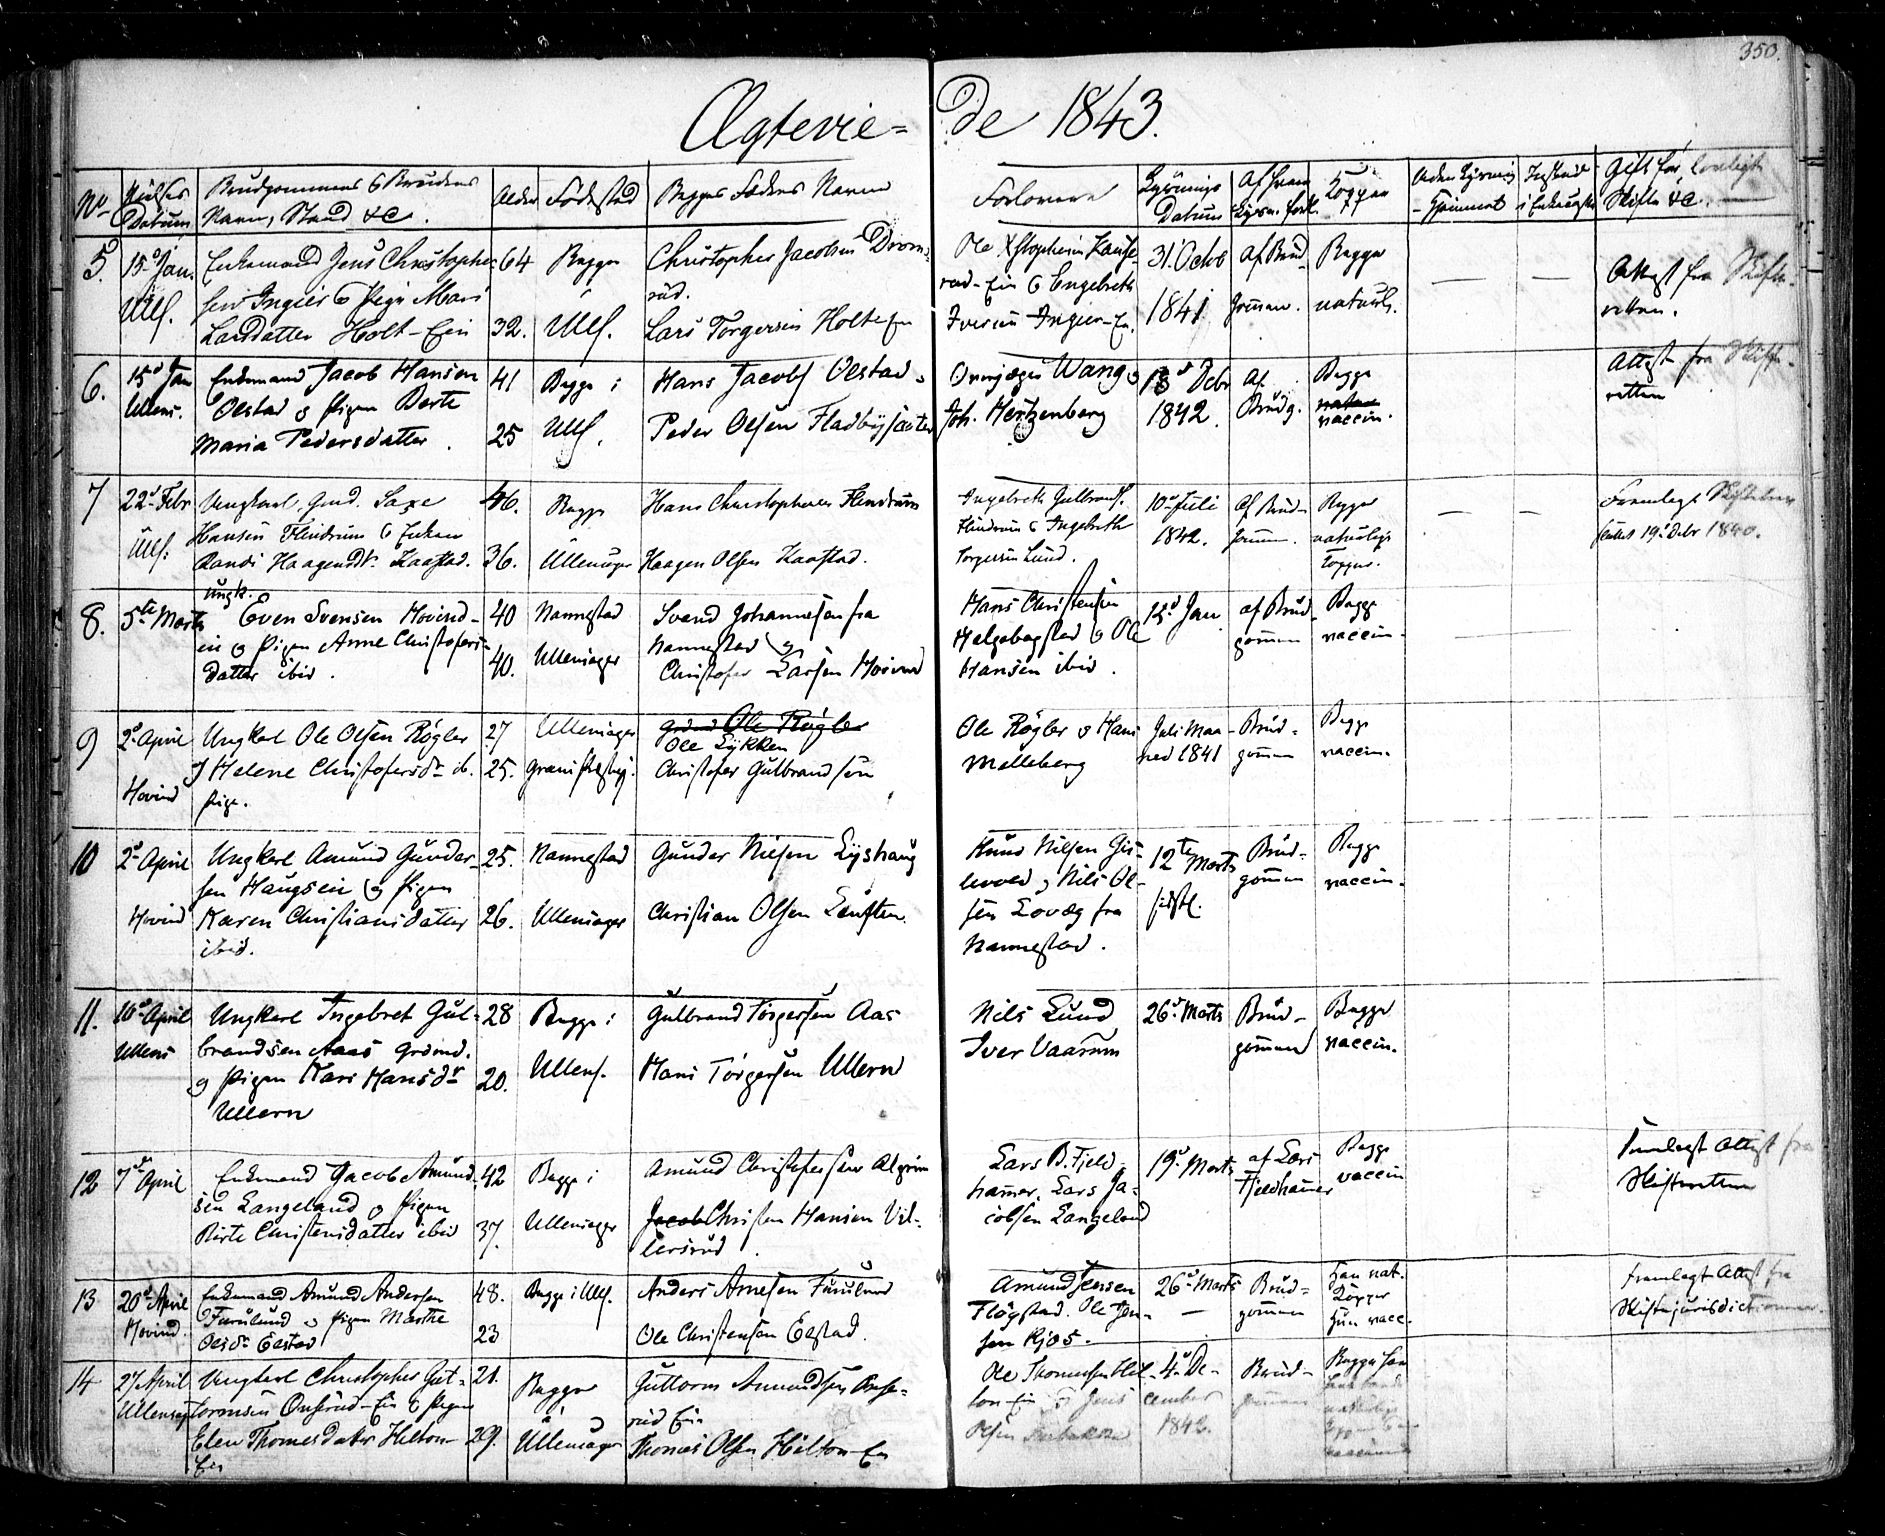 350.
Ægtevie= de 1843.
No Vielses Datum
Brudgommens & Brudens Navn, Stand &c.
Alder Fødested Begges Fædres Navne
Forlovere Lysnings Datum Af hvem Lysn. forl. Kopper
Uden Lysning Indført i Enkekassen Gift før, lovligt Skifte &c.
5. 15de Jan. Ulls.
Enkemand Jens Christopher-
sen Ingier & Pige Mari
Larsdatter Holt-Ein
64 32. Begge i Ulls.
Christopher Jacobsen
rud.
Lars Torgersen Holt-Ein
Ole
rud-Ein & Engebreth
Iversen Ingier-Ein.
31. Octob 1841 Af Brud- gommen. Begge naturl.
Attest fra Skifte-
retten.
6. 15d Jan Ullens.
Enkemand Jacob Hansen
Olstad og Pigen Berte
Maria Pedersdatter.
41 25 Begge i Ulls.
Hans Jacobs Olstad.
Peder Olsen Fladbysæter
Wang &
Joh. Hertzenberg
Decbr 1842. Af Brudg. Begge vaccin.
Attest fra Skifte-
retten
7 22d Febr Ulls.
Ungkarl, Gmd. Saxe
Hansen Flindrum & Enken
Randi Haagensdtr. Kaastad.
46. 36. Begge Ullensager
Hans Christophersen Flindrum
Haagen Olsen Kaastad.
Ingebreth Gulbrands.
Flindrum & Ingebreth
Torgersen Lund.
10de Juli 1842. Af Brud- gommen. Begge naturlige Kopper.
Fremlagt
sluttet 19de Debr 1840.
8. 5te Marts
Ungk.
Even Svensen Hovind-
ein og Pigen Anne Christofers-
datter ibid.
40 40. Nannestad Ullensager
Svend Johannesen fra
Nannestad og
Christofer Larsen Hovind
Hans Christensen
Helgebagstad & Ole
Hansen ibid.
Jan af Brud- gommen Begge vaccin.
9 2d April Hovind
Ungkarl Ole Olsen Røgler
og Helene Christofersdr ib.
Pige.
27 25. Ullensager
Ole Røgler
Ole Lykken
Christofer Gulbrandsen
Ole Røgler & Hans
Melleberg
Juli Maa- ned 1841 Brud- gommen Begge vaccin.
10 2d April Hovind
Ungkarl Amund Gunder-
sen Haugsein og Pigen
Karen Christiansdatter
ibid.
25. 26. Nannestad Ullensager
Gunder Nilsen Lyshaug
Christian Olsen
Knud Nilsen Gis-
levold, Nils Ol-
sen fra
Nannestad.
12te Marts sidstl. Brud- gommen Begge vaccin.
11. 10d April Ullens
Ungkarl Ingebret Gul-
brandsen Aas Grdmd.
og Pigen Kari Hansdr
Ullern
28 20. Begge i Ullens.
Gulbrand Torgersen Aas
Hans Torgersen Ullern
Nils Lund
Iver Vaarum
26d Marts Brud- gommen Begge vaccin.
12 7de April
Enkemand Jacob Amund-
sen Langeland og Pigen
Birte Christensdatter ibid
42 37. Begge i Ullensager
Amund Christofersen Algrim
Jacob Christen Hansen Vil-
bersrud.
Lars B. Fjeld-
hamer, Lars Ja-
cobsen Langeland
19d Marts af Lars Fjeldhamer Begge vaccin
Fremlagt Attest fra
Skifteretten
13 20d April Hovind.
Enkemand Amund Andersen
Furulund og Pigen Marthe
Olsdr Elstad
48. 23 Begge i Ulls.
Anders Arnesen Furulund
Ole Christensen Elstad.
Amund Jensen
Fløgstad. Ole Jen-
sen Kjos.
26d Marts Brud- gommen Han nat. Kopper Hun vacc.
Fremlagt Attest fra
Skiftejurisdictionen.
14 27 April Ullensager
Ungkarl Christopher Gut-
tormsen Onserud-Ein & Pigen
Elen Thomesdatter Hilton-
Ein
21. 29. Begge i Ullensager
Guttorm Amundsen Onse-
rud Ein.
Thomas Olsen Hilton-Ein
Ole Thomessen Hil-
ton-Ein & Jens
Olsen
4d De- cember 1842. Brud- gommen Begge